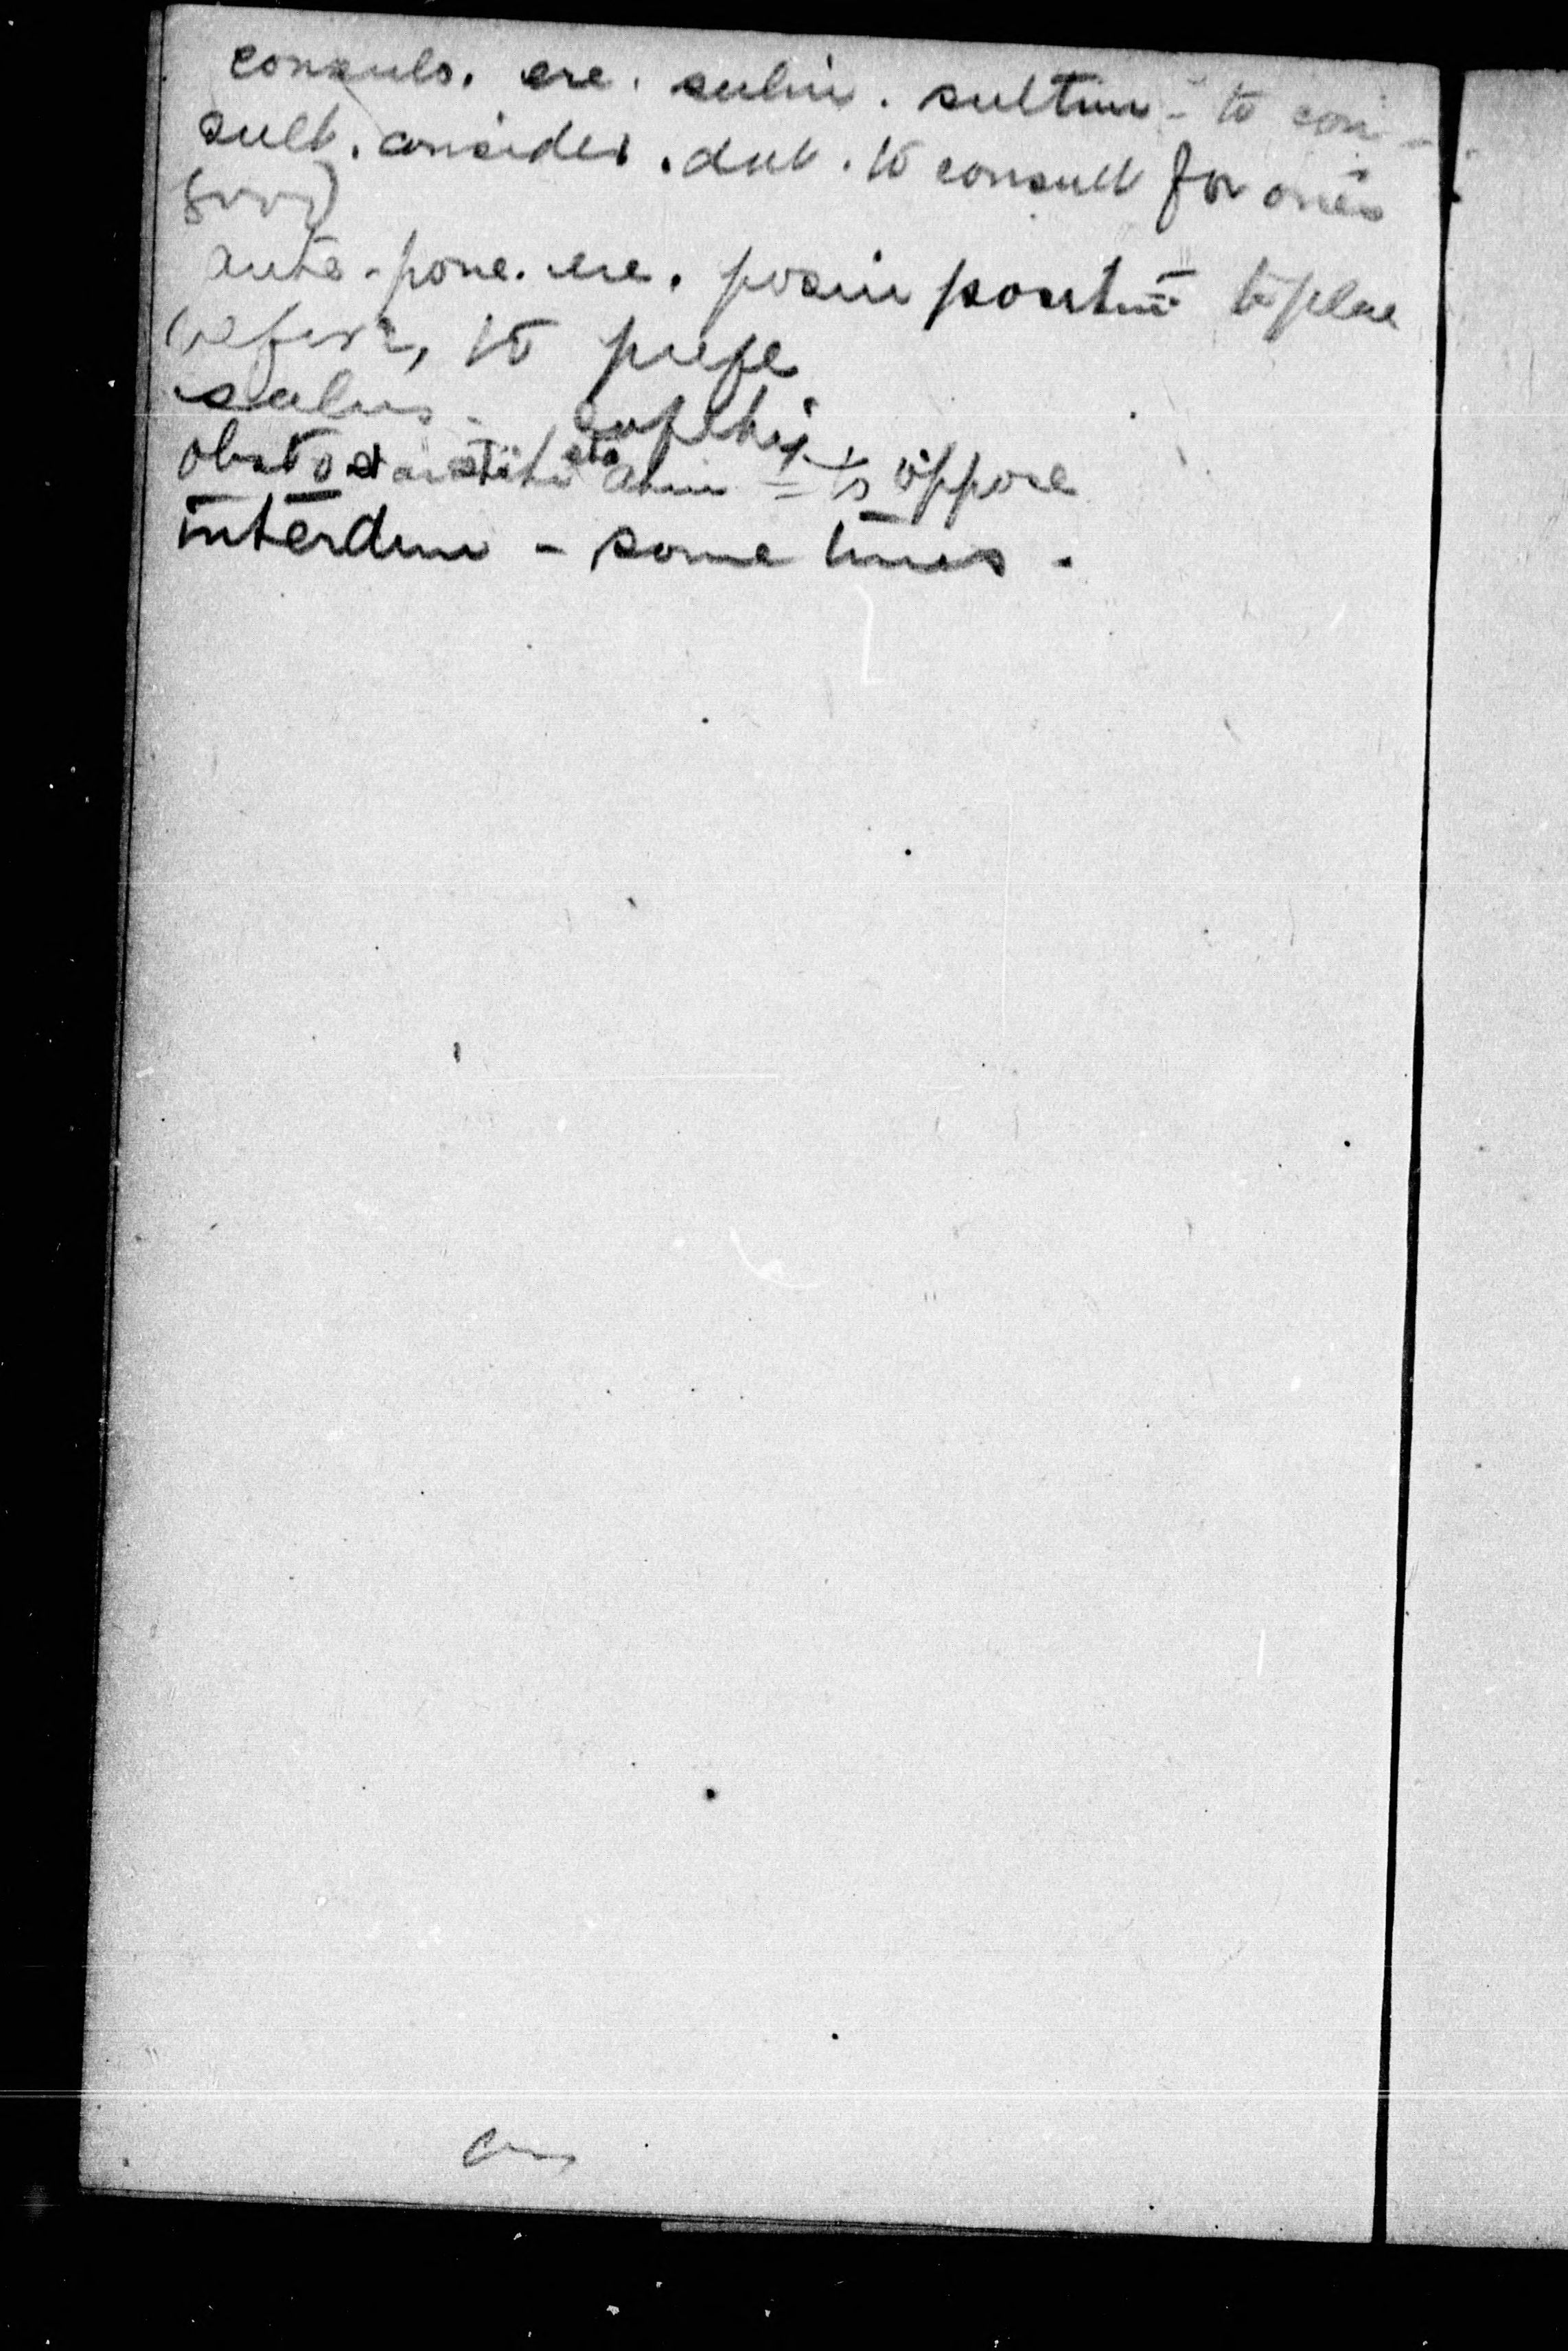 consulo. ere. sului. sultum - to con-
sult. consider. dat. to consult for one's
good
ante-pono. ere. posui positum to place
before, to prefe
salus - safety
obsto stare stiti sta atum = to oppose
interdum - some times.